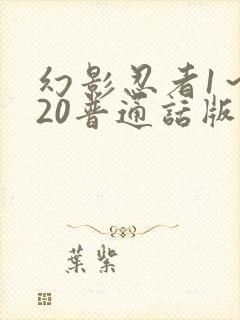 幻影忍者1~
20普通話版
葉紫